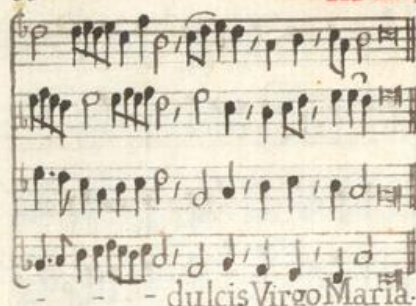 - - - dulcis Virgo Maria